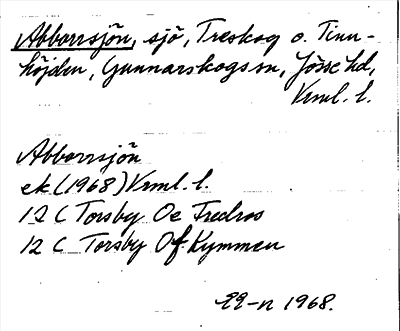 Abborrsjön, sjö, Treskog o. Tinn-
höjden, Gunnarskogs sn, Jösse hd,
Vrml. l.
Abborrsjön
ek (1968) Vrml. l.
12 C Torsby Oe Fredros
12 C Torsby Of Kymmen
1968.